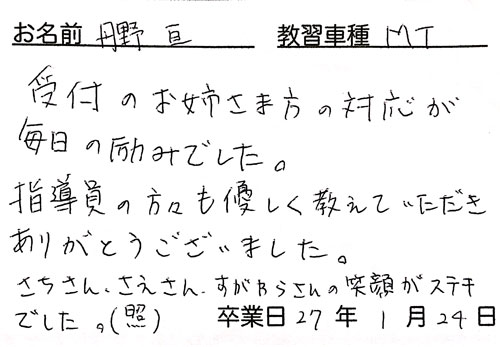 お名前 丹野 亘 教習車種 MT
受付のお姉さま方の対応が
毎日の励みでした。
指導員の方々も優しく教えていただき
ありがとうございました。
さちさん、さえさん、すがわらさんの笑顔がステキ
でした。(照) 卒業日27年1月24日